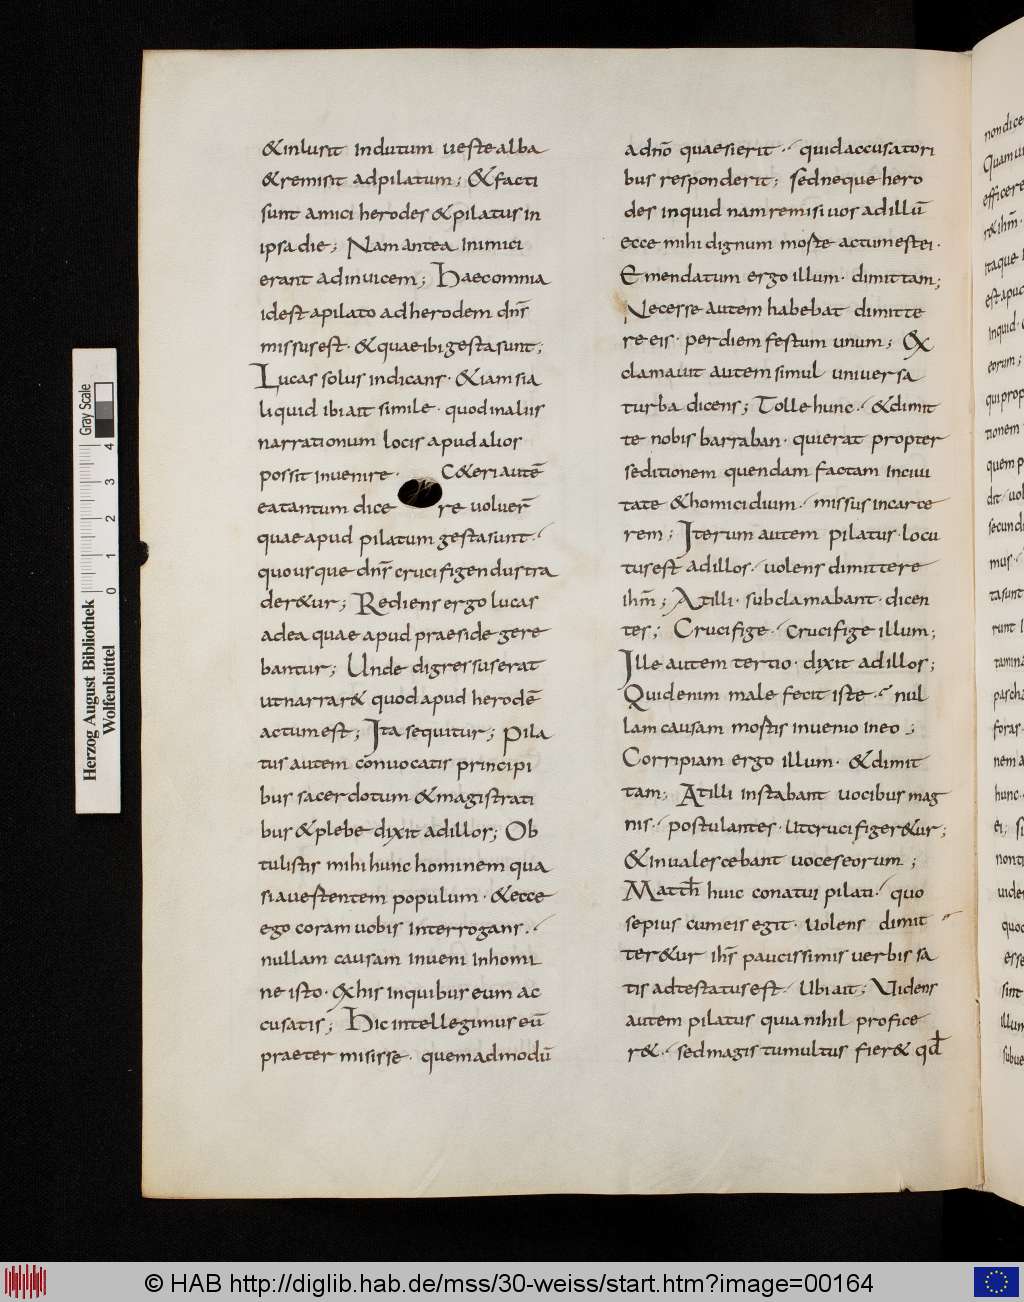 &inlusit indutum ueste alba
&remisit adpilatum; &facti
sunt amici herodes &pilatus in
ipsa die; Nam antea inimici
erant adinuicem; Haec omnia
idest apilato ad herodem dnſ̄
missus est· &quae ibi gesta sunt;
Lucas solus indicans· &iamsia
liquid ibi ait simile· quod in aliis
narrationum locis apud alios
possit inuenire· C&eri autē
ea tantum dicere uoluer̄
quae apud pilatum gesta sunt·
quo usque dnſ̄ crucifigendus tra
der&ur; Rediens ergo lucas
ad ea quae apud praeside gere
bantur; Unde digressus erat
ut narrar& quod apud herodē
actum est; Ita sequitur; Pila
tus autem conuocatis principi
bus sacerdotum &magistrati
bus &plebe dixit ad illos; Ob
tulistis mihi hunc hominem qua
si auestentem populum· &ecce
ego coram uobis interrogans·
nullam causam inueni in homi
ne isto· &his inquibus eum ac
cusatis; Hic intellegimus eū
praetermisisse· quemadmodū
a dnō quaesierit· quid accusatori
bus responderit; sed neque hero
des inquid nam remisi uos ad illū
ecce mihi dignum moste actum est ei·
Emendatum ergo illum· dimittam;
Necesse autem habebat dimitte
re eis· per diem festum unum; Ex
clamauit autem simul uniuersa
turba dicens; Tolle hunc· &dimit
te nobis barraban· qui erat propter
seditionem quendam factam in ciui
tate &homicidium· missus in carce
rem; Iterum autem pilatus· locu
tus est ad illos· uolens dimittere
ihm̄; At illi· subclamabant· dicen
tes; Crucifige· crucifige illum;
Ille autem tertio· dixit ad illos;
Quid enim male fecit iste· nul
lam causam mostis inuenio in eo;
Corripiam ergo illum· &dimit
tam; At illi instabant uocibus mag
nis· postulantes· ut crucifiger&ur;
&inualescebant uoces eorum;
Matth̄ huic conatui pilati· quo
sepius cum eis egit· uolens dimit
ter&ur ihſ̄ paucissimis uerbis sa
tis adtestatus est· Ubi ait; Uidens
autem pilatus quia nihil profice
r&· sed magis tumultus fier& qd̄
nondice
Quam
efficere
r&ihm̄·
itaque
est apud
inquid·
eorum;
qui prop
tionem
quem p
dit· uol
secundu
mus·
ta sunt
runt
tamina
pascha
foras·
nem a
hunc·
ei; Si
nont
uide
quod
esse
sint
illum
subue
Herzog August Bibliothek
Wolfenbüttel
Gray Scale
0 1 2 3 4
© HAB http://diglib.hab.de/mss/30-weiss/start.htm?image=00164